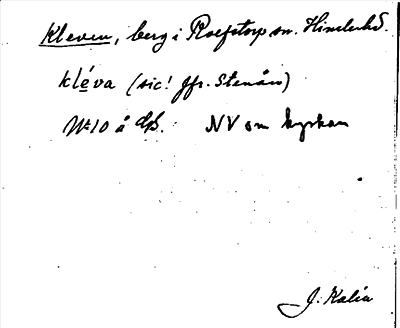 Kleven, berg i Rolfstorp sn. Himle hd.
kléva (sic! Jfr. Stenåsa)
Nr 10 å NV om kyrkan
J. Kalén